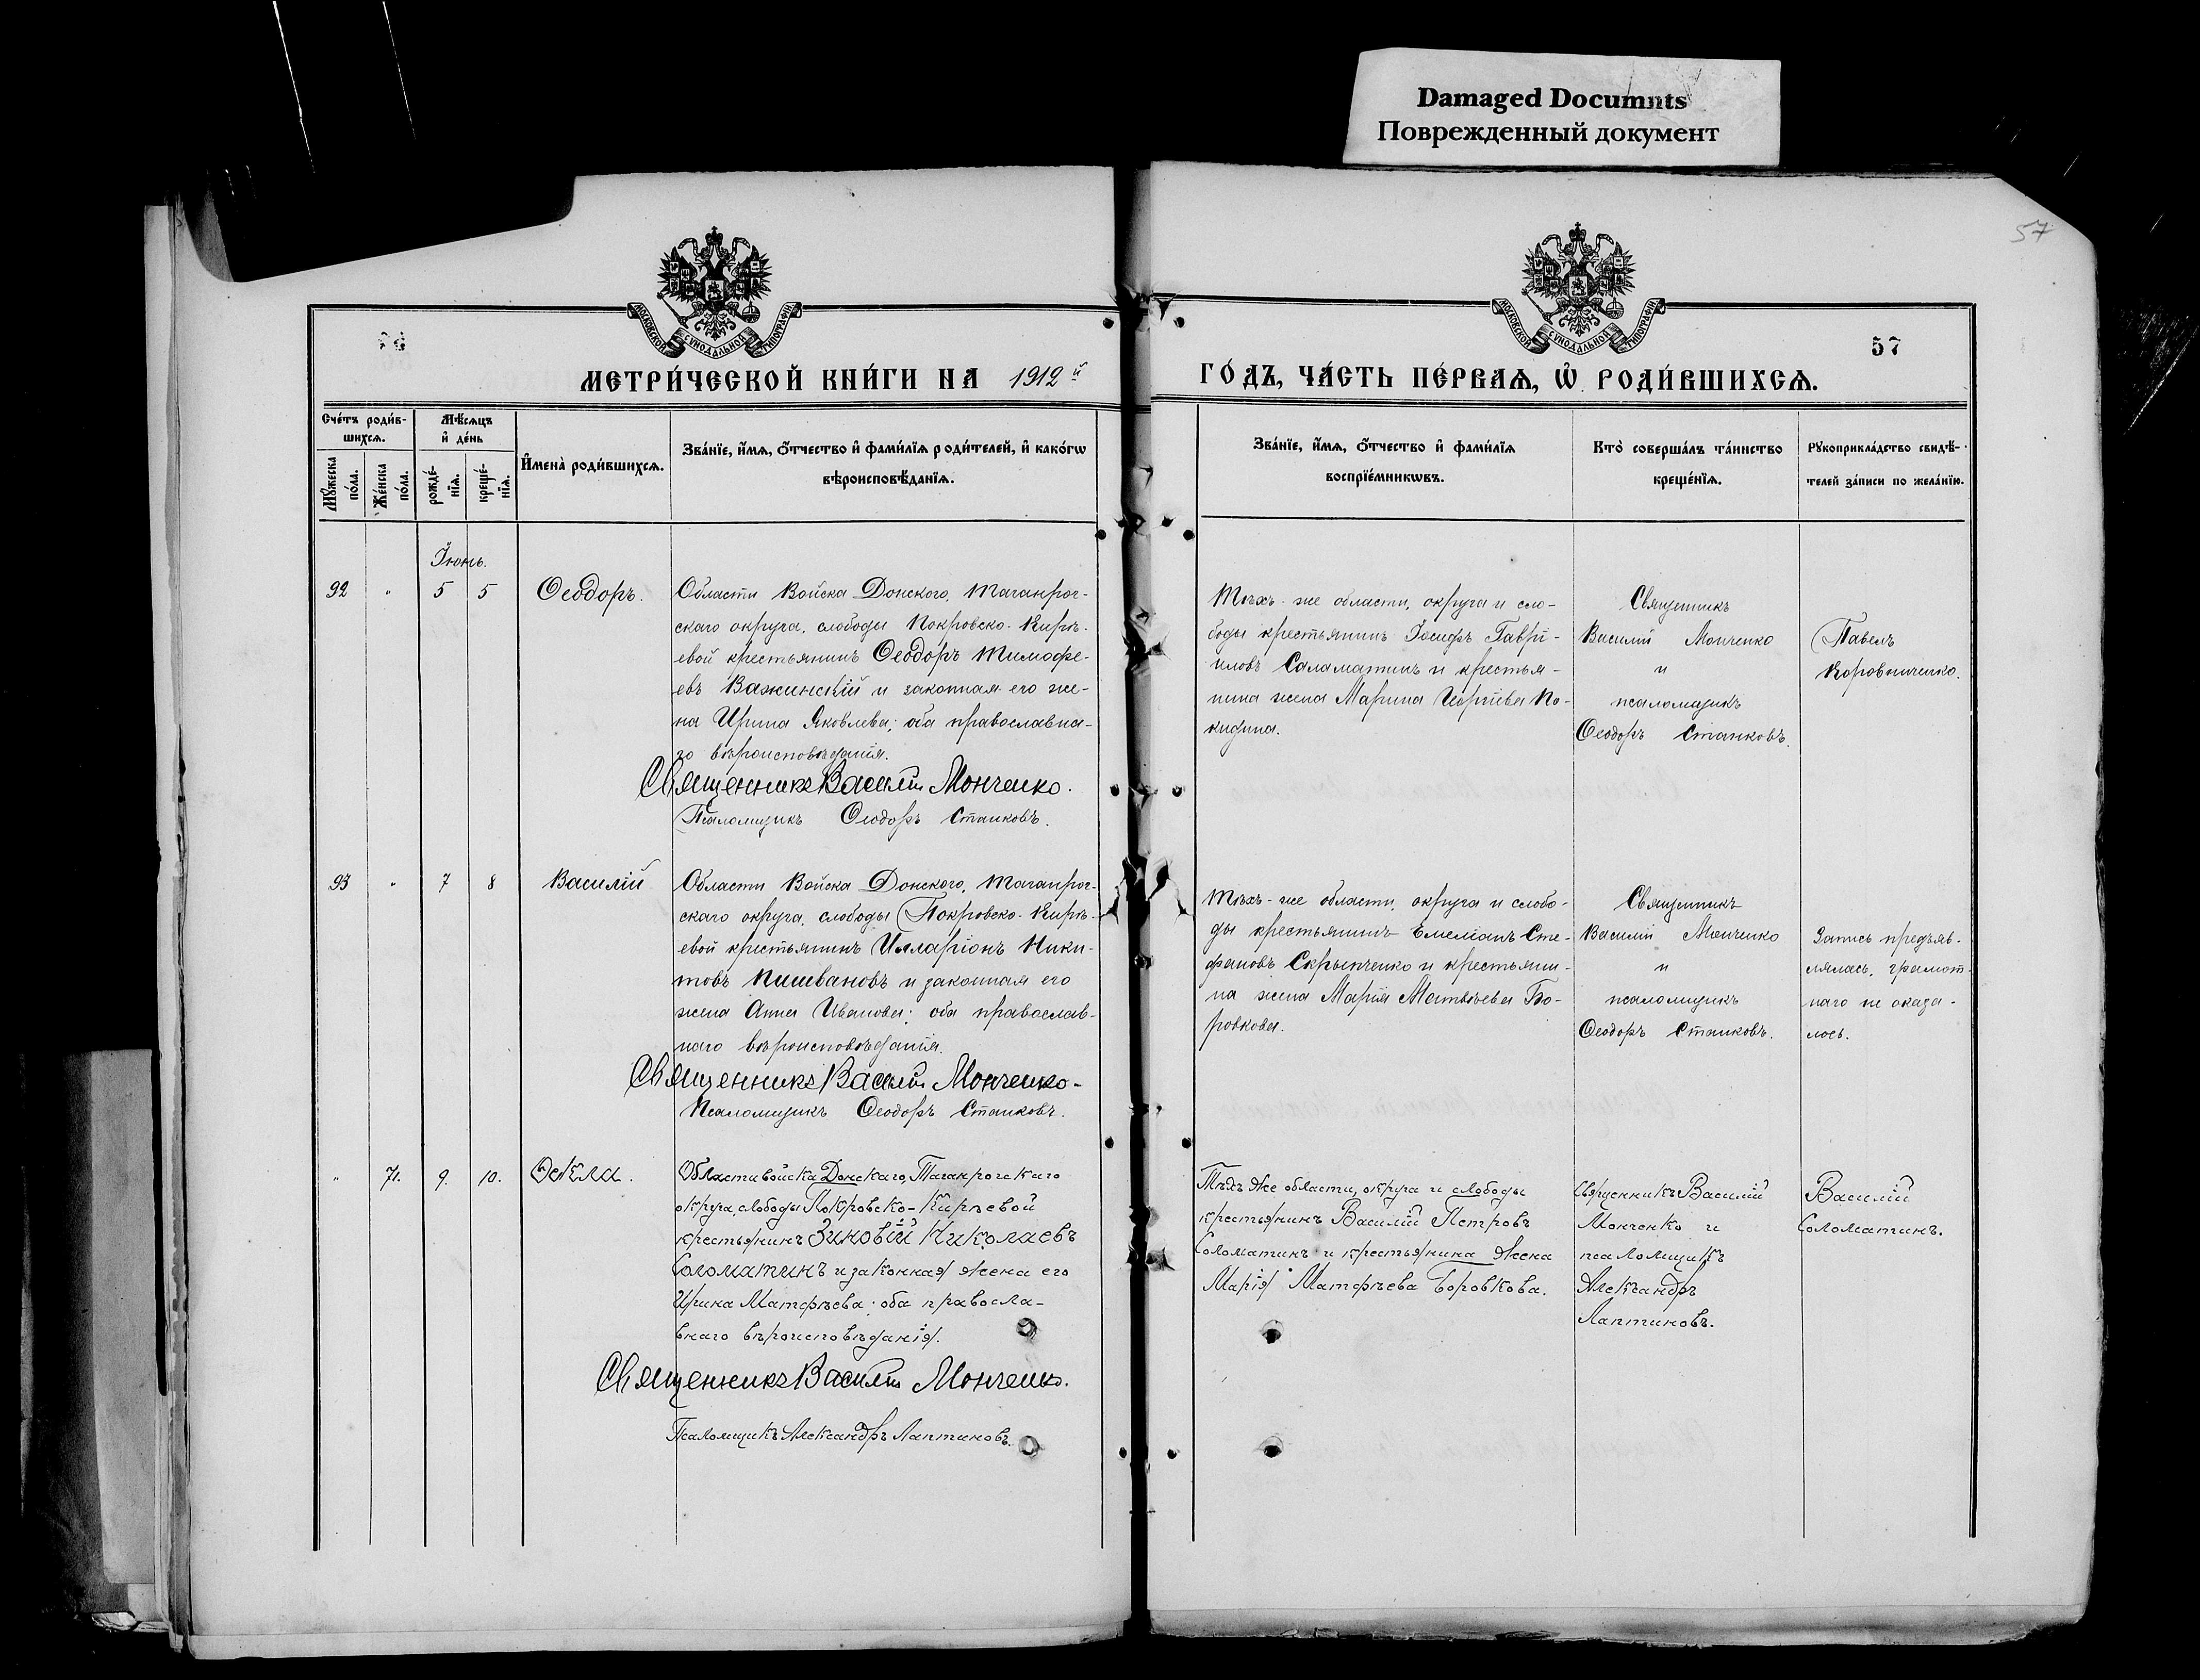 Damaged Documnts
Поврежденный документ
57
МОСКОВСКОЙ СѴНОДАЛЬНОЙ ТИПОГРАФІИ
МОСКОВСКОЙ СѴНОДАЛЬНОЙ ТИПОГРАФІИ
57
МЕТРИ́ЧЕСКОЙ КНИ́ГИ НА 1912й
ГО́ДЪ, ЧА́СТЬ ПЕ́РВАѦ, Ѡ҆ РОДИ́ВШИХСѦ.
Сче́тъ роди́в-
шихсѧ.
Мꙋ́жеска
по́ла.
Же́нска
по́ла.
Мѣ́сѧцъ
и҆ де́нь
рожде́-
нїѧ.
креще́-
нїѧ.
И҆мена̀ роди́вшихсѧ.
Зва́нїе, и҆́мѧ, ѻ҆́тчество и҆ фами́лїѧ роди́телей, и҆ како́гѡ
вѣроисповѣ́данїѧ.
Зва́нїе, и҆́мѧ, ѻ҆́тчество и҆ фами́лїѧ
воспрїе́мникѡвъ.
Кто̀ соверша́лъ та́инство
креще́нїѧ.
Рꙋкоприкла́дство свидѣ́-
телей за́писи по жела́нїю.
Іюнь.
92 " 5 5 Ѳеодоръ.
Области Войска Донского, Таганрог-
скаго округа, слободы Покровско-Кирѣ-
евой крестьянинъ Ѳеодоръ Тимофе-
евъ Важинскій и законная его же-
на Ирина Яковлева; оба православна-
го вѣроисповѣданія.
Священникъ Василій Монченко.
Псаломщикъ Ѳеодоръ Станковъ.
Тѣхъ-же области, округа и сло-
боды крестьянинъ Іосифъ Гаврі-
иловъ Саламатинъ и крестья-
нина жена Марина Георгіева По-
кидина.
Священникъ
Василій Монченко
и
псаломщикъ
Ѳеодоръ Станковъ.
Павелъ
93 " 7 8 Василій
Области Войска Донского, Таганрог-
скаго округа, слободы Покровско-Кирѣ-
евой крестьянинъ Илларіонъ Ники-
товъ Пишвановъ и законная его
жена Анна Иванова; оба православ-
наго вѣроисповѣданія.
Священникъ Василій Монченко-
Псаломщикъ Ѳеодоръ Станковъ.
Тѣхъ-же области, округа и слобо-
ды крестьянинъ Емеліанъ Сте-
фановъ Скрыпченко и крестьяни-
на жена Марія Матвѣева Бо-
ровкова.
Священникъ
Василій Монченко
и
псаломщикъ
Ѳеодоръ Станковъ.
Запись предъяв-
лялась, грамот-
наго не оказа-
лось.
" 71. 9. 10. Ѳекла.
Области войска Донскаго, Таганрогскаго
округа, слободы Покровско-Кирѣевой
крестьянинъ Зиновій Николаевъ
Соломатинъ и законная жена его
Ирина Матфѣева; оба правосла-
внаго вѣроисповѣданія.
Священникъ Василій Монченко.
Псаломщикъ Александръ Лаптиновъ.
Тѣхъ же области, округа и слободы
крестьянинъ Василій Петровъ
Соломатинъ и крестьянина жена
Марія Матфѣева Боровкова.
Священникъ Василій
Монченко и
псаломщикъ
Александръ
Лаптиновъ.
Василій
Соломатинъ.